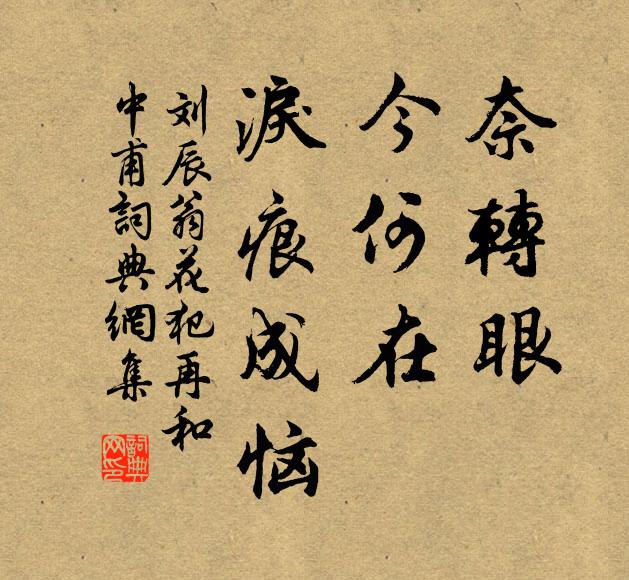 奈轉眼
今何在
淚痕成恼
刘辰翁花犯再和
中甫詞典網集
詞典
网印